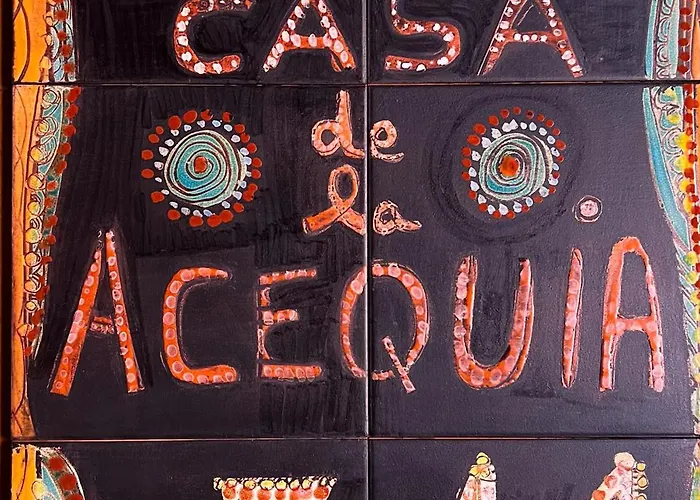 CASA
de
la
ACEQUIA